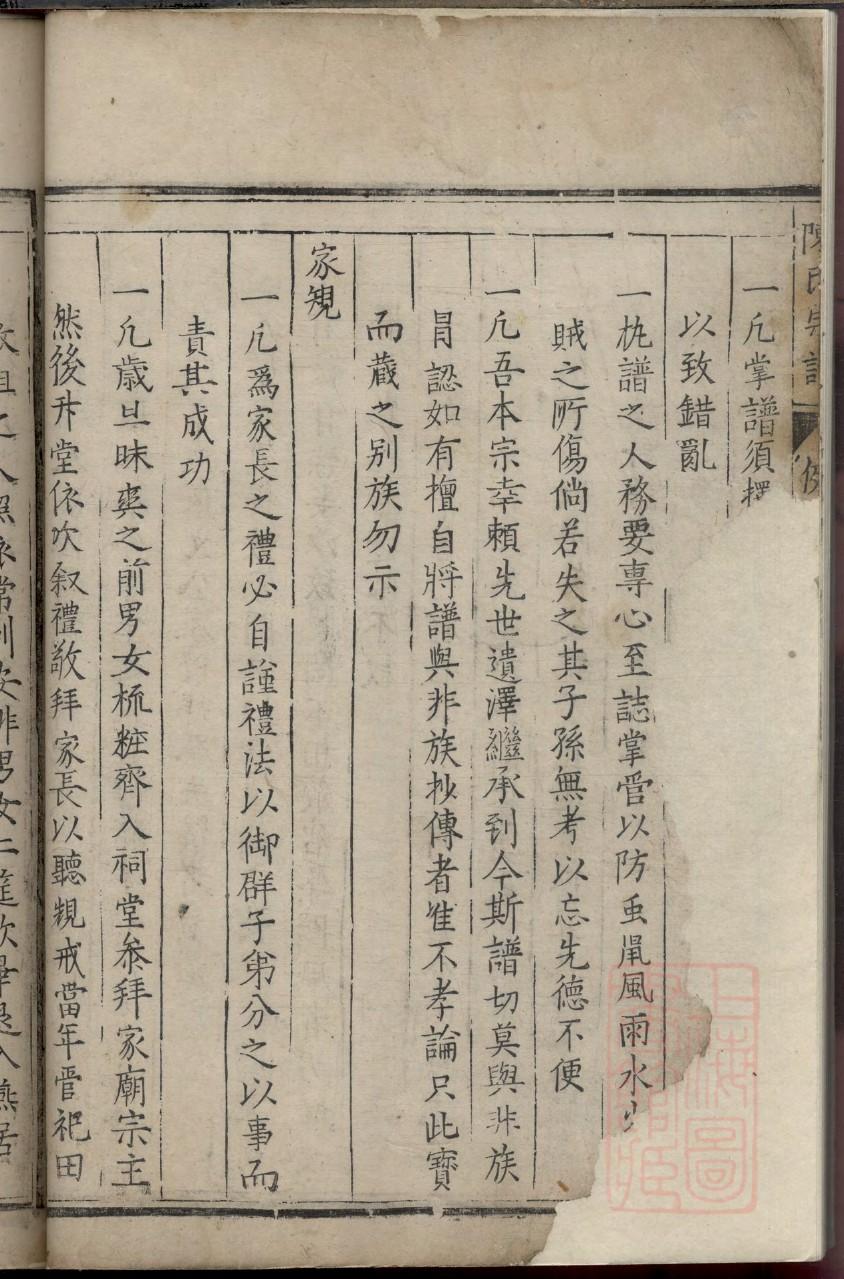 陳氏宗譜
例
一凡掌譜須擇
以致錯亂
一執譜之人務要專心至誌掌管以防虫鼠風雨水
賊之所傷倘若失之其子孫無考以忘先德不便
一凡吾本宗幸賴先世遺澤繼承到今斯譜切莫與非族
冐認如有擅自將譜與非族抄傳者惟不孝論只此寳
而藏之别族勿示
家規
一凡爲家長之禮必自謹禮法以御群子第分之以事而
責其成功
一凡歲旦昧爽之前男女梳粧齊入祠堂叅拜家廟宗主
然後升堂依次叙禮敬拜家長以聽規戒當年管祀田
之人照依常例安排男女二筵飲畢退入燕居
上海圖